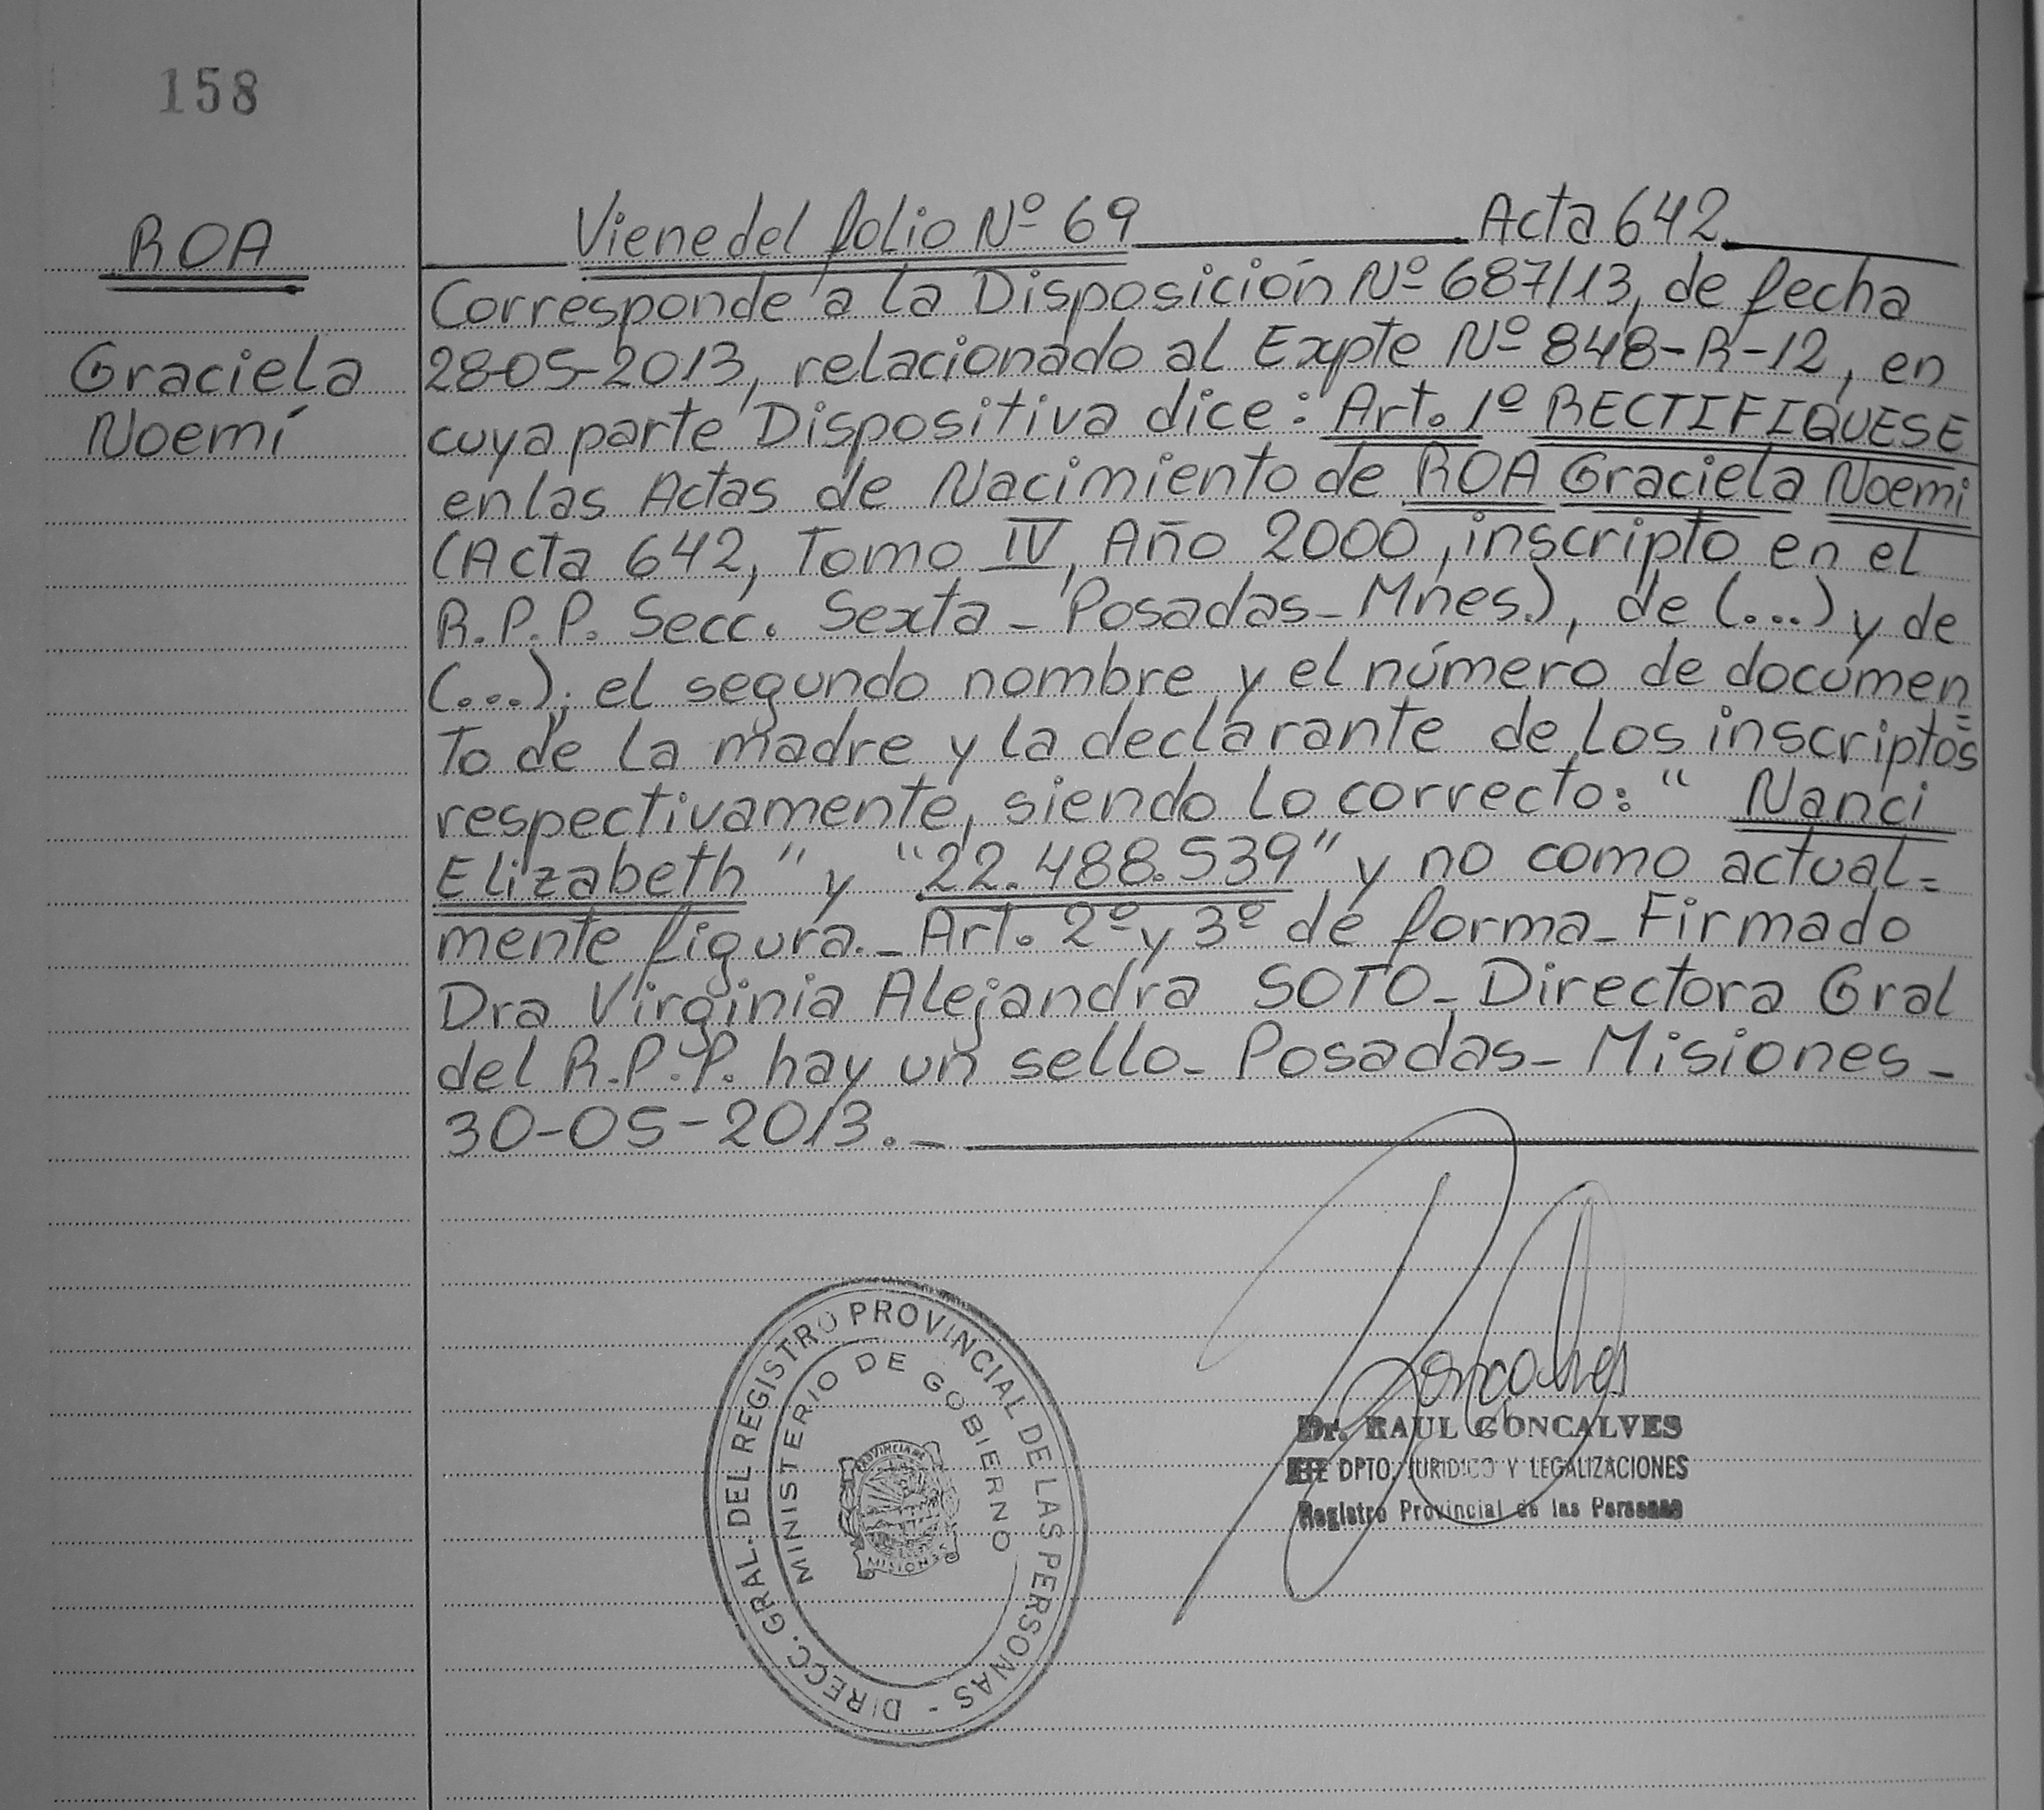 158
ROA
Graciela
Noemí
Viene del folio Nº 69 Acta 642
Corresponde a la Disposición Nº 687/13, de fecha
28-05-2013, relacionado al Expte Nº 848-R-12, en
cuya parte Dispositiva dice: Art. 1º RECTIFIQUESE
en las Actas de Nacimiento de ROA Graciela Noemi
(Acta 642, Tomo IV, Año 2000, inscripto en el
R.P.P. Secc. Sexta - Posadas - Mnes.), de (...) y de
(...); el segundo nombre y el número de documen=
to de la madre y la declarante de los inscriptos
respectivamente, siendo lo correcto: " Nanci
Elizabeth" y "22.488.539" y no como actual=
mente figura.- Art. 2º y 3º de forma - Firmado
Dra Virginia Alejandra SOTO - Directora Gral
del R.P.P. hay un sello - Posadas - Misiones -
30-05-2013.-
DIRECC. GRAL. DEL REGISTRO PROVINCIAL DE LAS PERSONAS -
MINISTERIO DE GOBIERNO
PROVINCIA DE
MISIONES
Goncalves
Dr. RAUL GONCALVES
JEFE DPTO. JURIDICO Y LEGALIZACIONES
Registro Provincial de las Personas